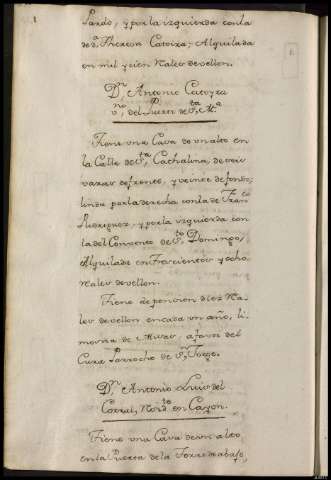 Pardo, y por la izquierda con la
de Dª. Theresa Catoira; Alquilada
en mil y cien Rales de vellon.
Dn. Antonio Catoyra
vno. del Puerto de Sta. Mª.
Tiene una Casa de un alto en
la Calle de Sta. Cathalina, de seis
varas de frente, y veinte de fondo;
linda por la derecha con la de Franco.
Rodriguez, y por la izquierda con
la del Convento de Sto. Domingo,
Alquilada en Trescientos y ocho
Rales de vellon.
Tiene de pension diez Ra-
les de vellon en cada un año, li-
mosna de Misas, a favor del
Cura Parrocho de Sn. Jorge.
Dn. Antonio Luis del
Corral, Nordo. en Cayon.
Tiene una Casa de un alto,
en la Puerta de la Torre de abajo,